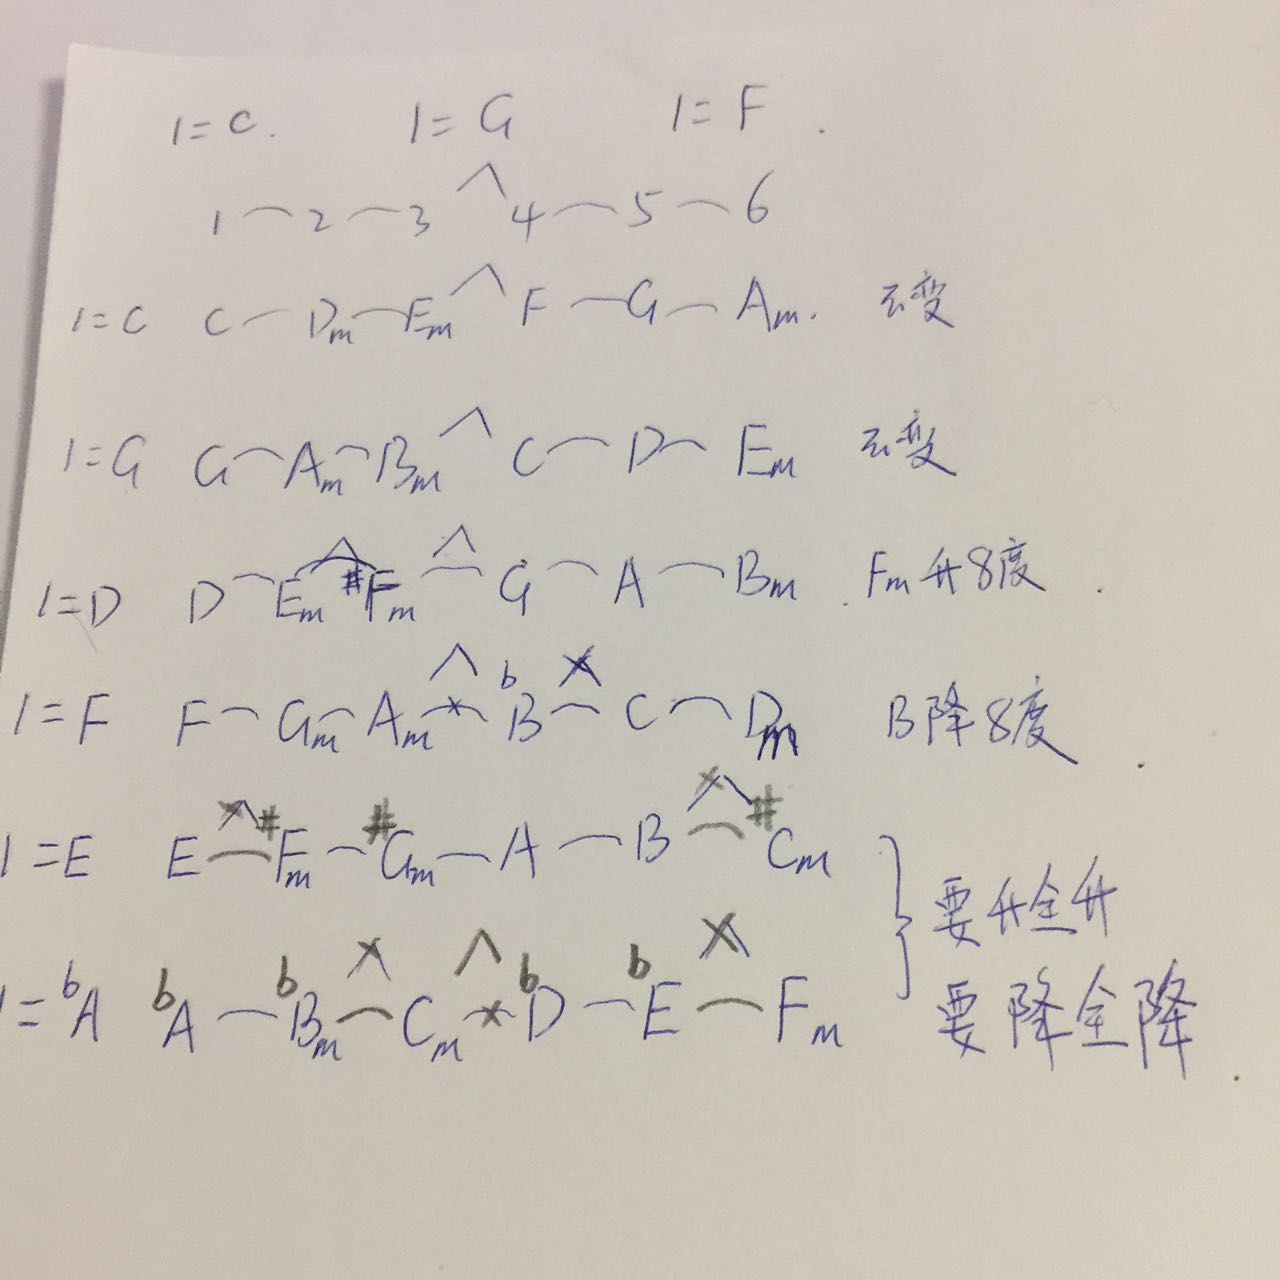 1=C. 1=G 1=F.
1 2 3 4 5 6
1=C C Dm Em F G Am. 不变
1=G G Am Bm C D Em 不变
1=D D Em #Fm G A Bm . Fm升8度 .
1=F F Gm Am bB C Dm B降8度 .
1=E E #Fm #Gm A B #Cm } 要升全升
1=bA bA bBm Cm bD bE Fm 要降全降 .